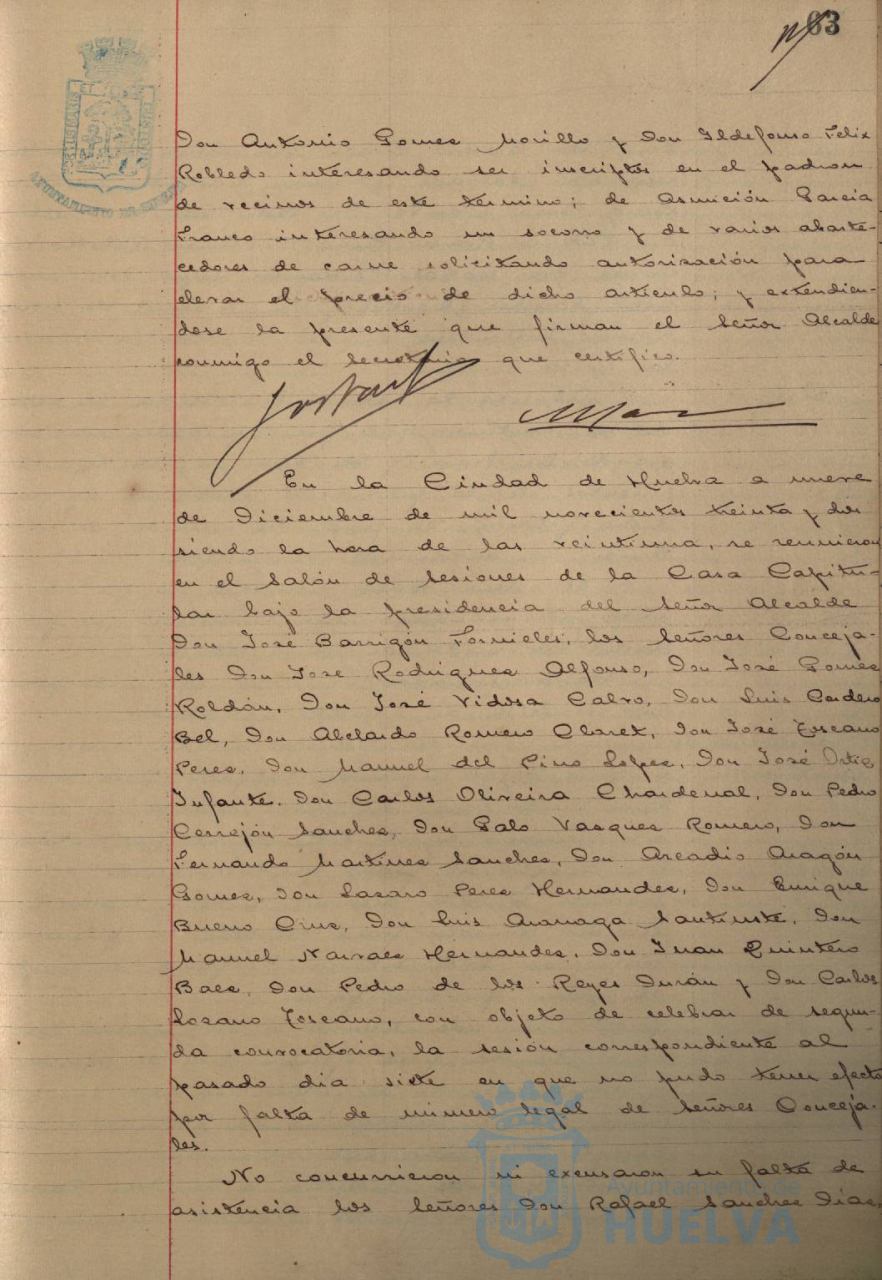 83
Don Antonio Gomez Morillo y Don Ildefonso Felix
Robledo interesando ser inscriptos en el padron
de vecinos de este termino; de Asunción Garcia
Franco interesando un socorro y de varios abaste-
cedores de carne solicitando autorización para
elevar el precio de dicho artículo; y extendien-
dose la presente que firman el Señor Alcalde
conmigo el Secretario que certifico.
En la Ciudad de Huelva a nueve
de Diciembre de mil novecientos treinta y dos
siendo la hora de las veintiuna, se reunieron
en el Salón de Sesiones de la Casa Capitu-
lar bajo la presidencia del Señor Alcalde
Don José Barrigón Fornieles, los Señores Conceja-
les Don Jose Rodriguez Alfonso, Don José Gomez
Roldán, Don José Vidosa Calvo, Don Luis Cordero
Bel, Don Abelardo Romero Claret, Don José Toscano
Perez, Don Manuel del Pino Lopez, Don José Ortiz
Infante, Don Carlos Oliveira Chardenal, Don Pedro
Cerrejón Sanchez, Don Galo Vazquez Romero, Don
Fernando Martinez Sanchez, Don Arcadio Aragón
Gomez, Don Lazaro Perez Hernandez, Don Enrique
Bueno Cruz, Don Luis Aranaga Santiuste, Don
Manuel Narvaez Hernandez, Don Juan Quintero
Baez, Don Pedro de los Reyes Durán y Don Carlos
Lozano Toscano, con objeto de celebrar de segun-
da convocatoria, la sesión correspondiente al
pasado dia siete en que no pudo tener efecto
por falta de número legal de Señores Conceja-
les.
No concurrieron ni excusaron su falta de
asistencia los Señores Don Rafael Sanchez Diaz,
Ayuntamiento de
HUELVA